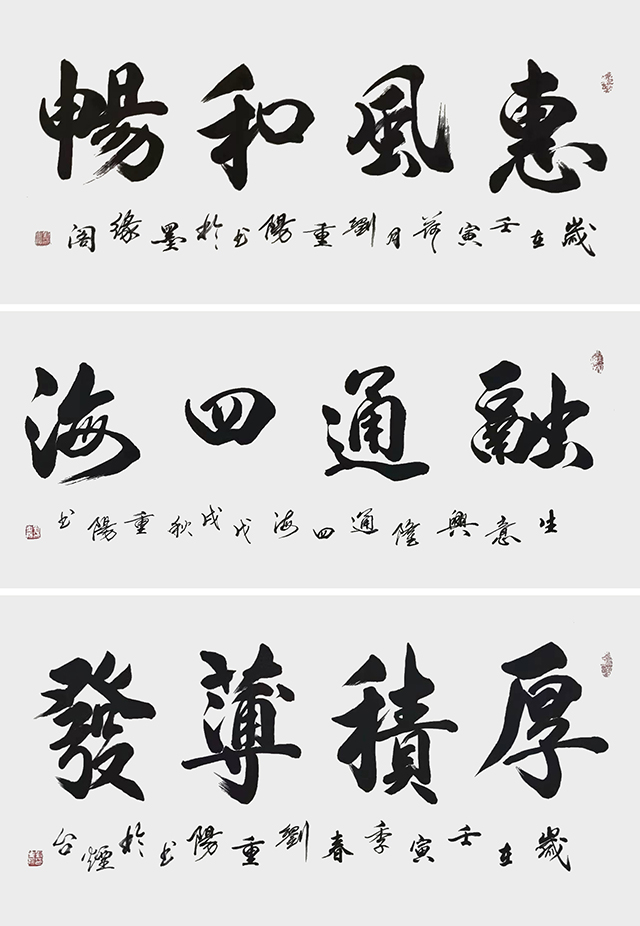 惠風和暢
歲在壬寅荷月劉重陽書於墨緣閣
融通四海
生意興隆通四海戊戌秋重陽書
厚積薄發
歲在壬寅季春劉重陽書於煙台